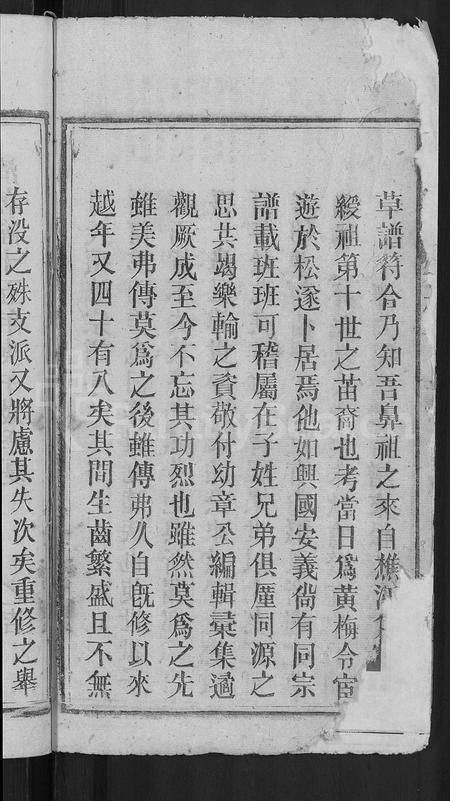 草譜符合乃知吾鼻祖之來自樵
綬祖第十世之苗裔也考當日爲黃梅令宦
遊於松遂卜居焉他如興國安義尙有同宗
譜載班班可稽屬在子姓兄弟俱厪同源之
思共竭樂輸之資敬付幼章公編輯彚集遹
觀厥成至今不忘其功烈也雖然莫爲之先
雖美弗傳莫爲之後雖傳弗久自旣修以來
越年又四十有八矣其間生齒繁盛且不無
存没之殊支派又將慮其失次矣重修之舉